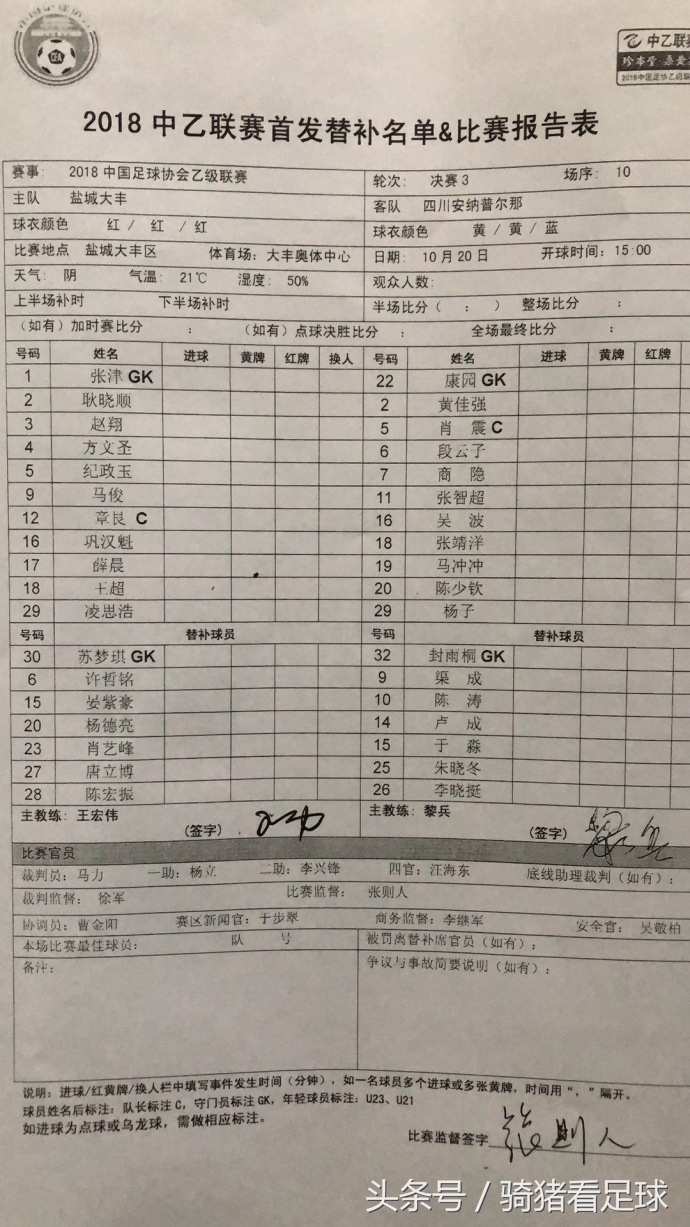 CFA
中乙联赛
珍本堂·桑黄
2018中国足协乙级联
2018 中乙联赛首发替补名单&比赛报告表
赛事: 2018 中国足球协会乙级联赛 轮次: 决赛 3 场序: 10
主队 盐城大丰 客队 四川安纳普尔那
球衣颜色 红 / 红 / 红 球衣颜色 黄 / 黄 / 蓝
比赛地点 盐城大丰区 体育场: 大丰奥体中心 日期: 10 月 20 日 开球时间: 15:00
天气: 阴 气温: 21℃ 湿度: 50% 观众人数:
上半场补时 下半场补时 半场比分 ( : ) 整场比分 :
(如有) 加时赛比分 : (如有) 点球决胜比分 : 全场最终比分 :
号码 姓名 进球 黄牌 红牌 换人 号码 姓名 进球 黄牌 红牌
1 张津 GK 22 康园 GK
2 耿晓顺 2 黄佳强
3 赵翔 5 肖 震 C
4 方文圣 6 段云子
5 纪政玉 7 商 隐
9 马俊 11 张智超
12 章艮 C 16 吴 波
16 巩汉魁 18 张靖洋
17 薛晨 19 马冲冲
18 王超 20 陈少钦
29 凌思浩 29 杨子
号码 替补球员 号码 替补球员
30 苏梦琪 GK 32 封雨桐 GK
6 许哲铭 9 渠 成
15 晏紫豪 10 陈 涛
20 杨德亮 14 卢 成
23 肖艺峰 15 于 淼
27 唐立博 25 朱晓冬
28 陈宏振 26 李晓挺
主教练: 王宏伟 主教练: 黎兵
(签字) (签字)
比赛官员
裁判员: 马力 一助: 杨立 二助: 李兴锋 四官: 汪海东 底线助理裁判 (如有):
裁判监督: 徐军 比赛监督: 张则人
协调员: 曹金阳 赛区新闻官: 于步翠 商务监督: 李继军 安全官: 吴敬柏
本场比赛最佳球员: 队 号 被罚离替补席官员 (如有):
备注: 争议与事故简要说明 (如有):
说明: 进球/红黄牌/换人栏中填写事件发生时间 (分钟), 如一名球员多个进球或多张黄牌, 时间用“, ”隔开。
球员姓名后标注: 队长标注 C, 守门员标注 GK, 年轻球员标注: U23、U21
如进球为点球或乌龙球, 需做相应标注。
比赛监督签字 张则人
头条号 / 骑猪看足球